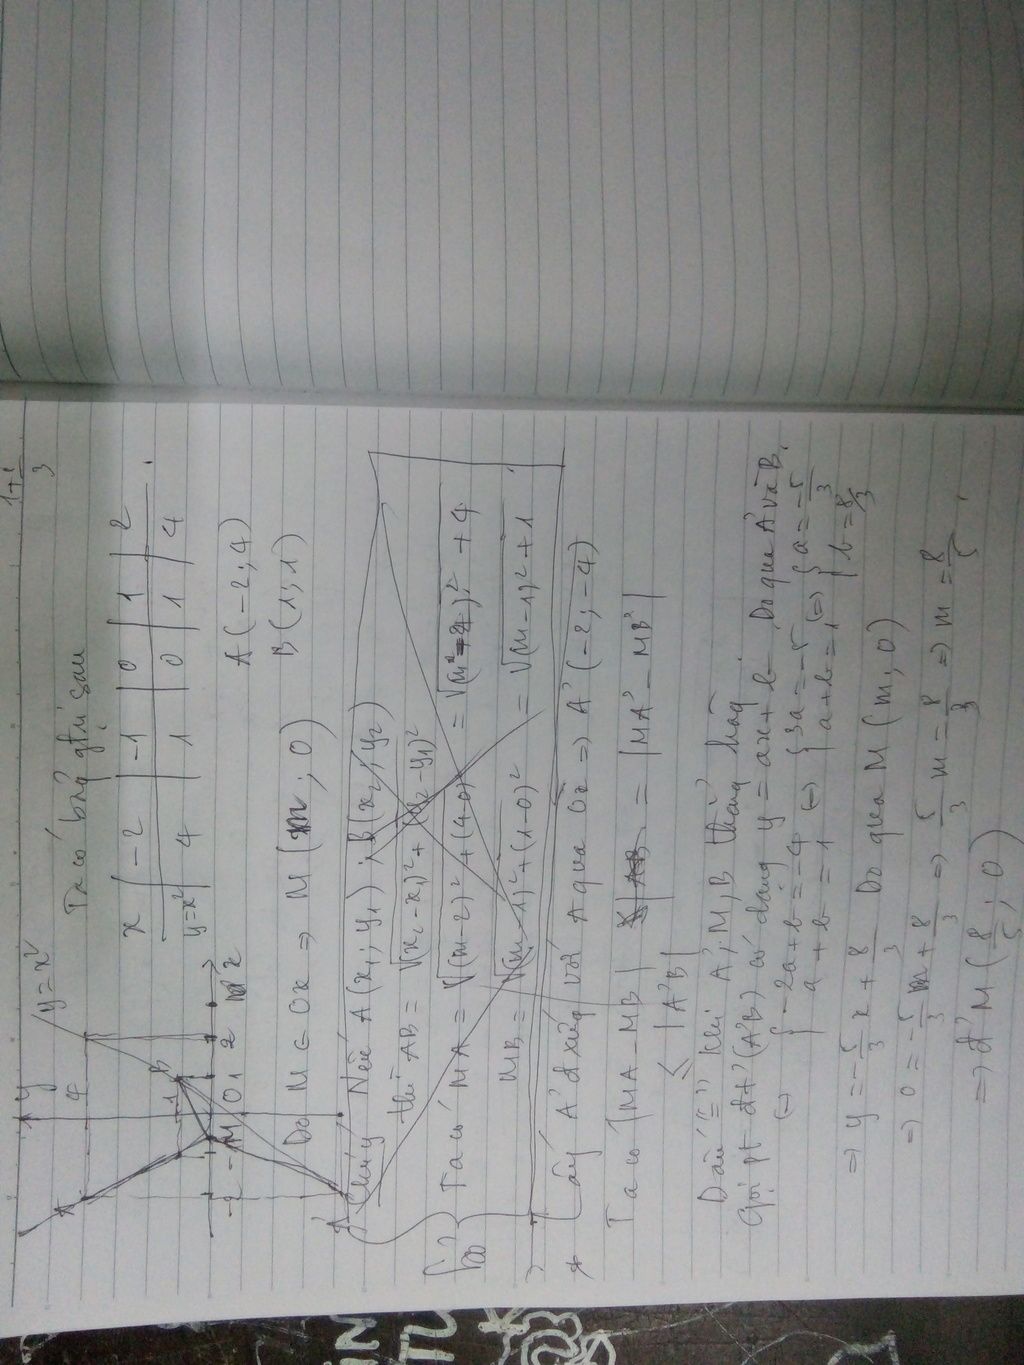 1+i
3
y = x²
Ta có bảng gtrị sau
x | -2 | -1 | 0 | 1 | 2
y=x² | 4 | 1 | 0 | 1 | 4
y
4
A
B
1
-2 M 0 1 2 x
A'
A(-2; 4)
B(1; 1)
Do M ∈ Ox => M(m; 0)
Chú ý Nếu A(x₁; y₁); B(x₂; y₂)
thì AB = √(x₂-x₁)²+(y₂-y₁)²
Ta có MA = √(m-2)²+(4-0)² =
MB = √(m-1)²+(1-0)² = √(m-1)²+1
* Lấy A' đxứng với A qua Ox => A'(-2; -4)
Ta có |MA-MB| = |MA'-MB|
≤ |A'B|
Dấu "=" khi A'; M, B thẳng hàng
Gọi pt đt (A'B) có dạng y = ax+b. Do qua A' và B.
(=) { -2a+b=-4 (=) { 3a=-5 (=) { a=-5/3
a+b=1 a+b=1 b=8/3
=> y = -5/3 x + 8/3 Do qua M(m, 0)
=> 0 = -5/3 m + 8/3 => 5/3 m = 8/3 => m = 8/5.
=> đ' M(8/5; 0)